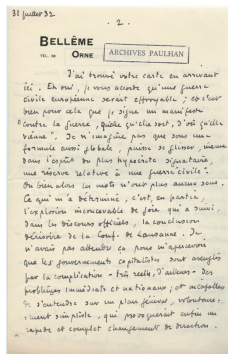 31 juillet 32
- 2 -
BELLÊME
TÉL. 28 ORNE
ARCHIVES PAULHAN
J'ai trouvé votre carte en arrivant
ici. Eh oui, je vous accorde qu'une guerre
civile européenne serait effroyable ; et c'est
bien pour cela que je signe un manifeste
"contre la guerre, quelle qu'elle soit, d'où qu'elle
vienne". Je n'imagine pas que sous une
formule aussi globale, puisse se glisser, même
dans l'esprit du plus hypocrite signataire,
une réserve relative à une guerre civile.
Ou bien alors les mots n'ont plus aucun sens.
Ce qui m'a déterminé, c'est, en partie,
l'explosion inconcevable de joie qui a suivi,
dans les discours officiels, la conclusion
dérisoire de la Conf. de Lausanne. Je
n'avais pas attendu ça pour m'apercevoir
que les gouvernements capitalistes sont aveuglés
par la complication - très réelle, d'ailleurs - des
problèmes immédiats et nationaux ; et incapables
de s'entendre sur un plan général, volontaire-
ment simpliste, qui provoquerait enfin un
rapide et complet changement de direction.